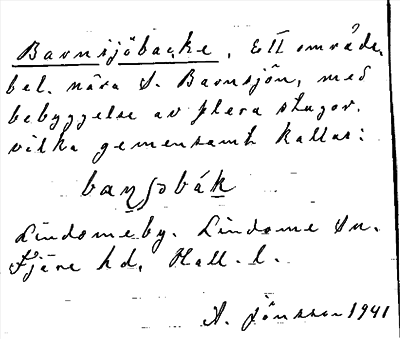 Barnsjöbacke. Ett område,
bel. nära S. Barnsjön, med
bebyggelse av flera stugor.
vilka gemensamt kallas:
Lindomeby. Lindome sn.
Fjäre hd. Hall. l.
A. Jönsson 1941